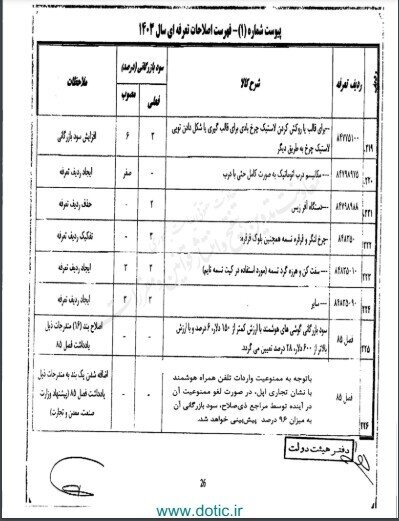 پیوست شماره (۱) - فهرست اصلاحات تعرفه ای سال ۱۴۰۳
ردیف تعرفه
شرح کالا
سود بازرگانی (درصد)
ملاحظات
فعلی
مصوب
۲۱۹
۸۴۷۷۵۱۰۰
---برای قالب یا روکش کردن لاستیک چرخ بادی برای قالب گیری یا شکل دادن تویی
لاستیک چرخ به طریق دیگر
۲
۶
افزایش سود بازرگانی
۲۲۰
۸۴۷۹۸۹۷۵
---مکانیسم درب اتوماتیک به صورت کامل حتی با درب
-
صفر
ایجاد ردیف تعرفه
۲۲۱
۸۴۷۹۸۹۸۸
---دستگاه آفر ریس
۲
۰
حذف ردیف تعرفه
۲۲۲
۸۴۸۳۵۰
-چرخ لنگر و قرقره تسمه همچنین بلوک قرقره:
۰
تفکیک ردیف تعرفه
۲۲۳
۸۴۸۳۵۰۱۰
---سفت کن و هرزه گرد تسمه (مورد استفاده در کیت تسمه تایم)
۲
۲
ایجاد ردیف تعرفه
۲۲۴
۸۴۸۳۵۰۹۰
---سایر
۲
ایجاد ردیف تعرفه
۲۲۵
فصل ۸۵
سود بازرگانی گوشی های هوشمند با ارزش کمتر از ۱۵۰ دلار، ۶ درصد و با ارزش
بالاتر از ۶۰۰ دلار، ۲۸ درصد تعیین می گردد.
-
-
اصلاح بند (۱۶) مندرجات ذیل
یادداشت فصل ۸۵
۲۲۶
فصل ۸۵
باتوجه به ممنوعیت واردات تلفن همراه هوشمند
با نشان تجاری اپل، در صورت لغو ممنوعیت آن
در آینده توسط مراجع ذی‌صلاح، سود بازرگانی آن
به میزان ۹۶ درصد پیش‌بینی خواهد شد.
-
-
اضافه شدن یک بند به مندرجات ذیل
یادداشت فصل ۸۵ (پیشنهاد وزارت
صنعت، معدن و تجارت)
دفتر هیئت دولت
26
www.dotic.ir